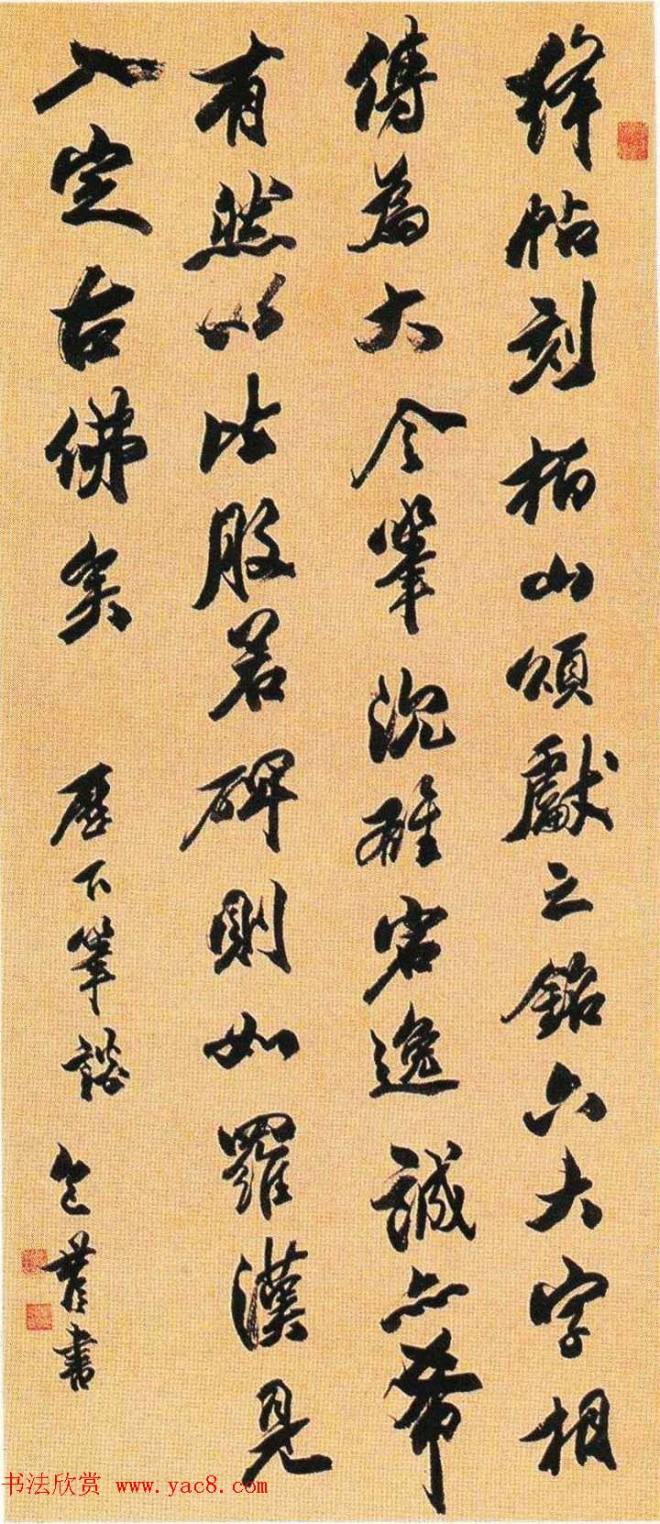 絳帖刻栢山頌獻之銘六大字相
傳為大令筆沉雄宕逸誠亦希
有然以比般若碑則如羅漢見
入定古佛矣 歷下筆談 包書
书法欣赏 www.yac8.com